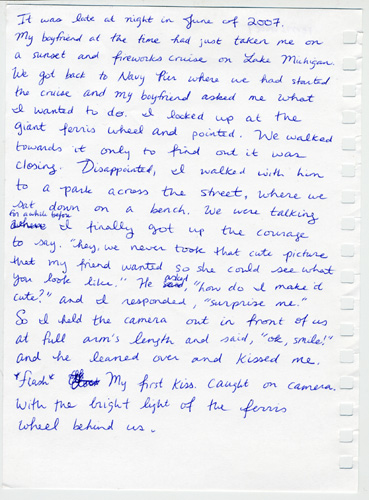 It was late at night in June of 2007.
My boyfriend at the time had just taken me on
a sunset and fireworks cruise on Lake Michigan.
We got back to Navy Pier where we had started
the cruise and my boyfriend asked me what
I wanted to do. I looked up at the
giant ferris wheel and pointed. We walked
towards it only to find out it was
closing. Disappointed, I walked with him
to a park across the street, where we
sat down on a bench. We were talking
for a while before
I finally got up the courage
to say. "hey, we never took that cute picture
that my friend wanted so she could see what
you look like." He asked, "how do I make it
cute?" and I responded, "surprise me."
So I held the camera out in front of us
at full arm's length and said, "ok, smile!"
and he leaned over and kissed me.
*flash* My first kiss. Caught on camera.
With the bright light of the ferris
wheel behind us.